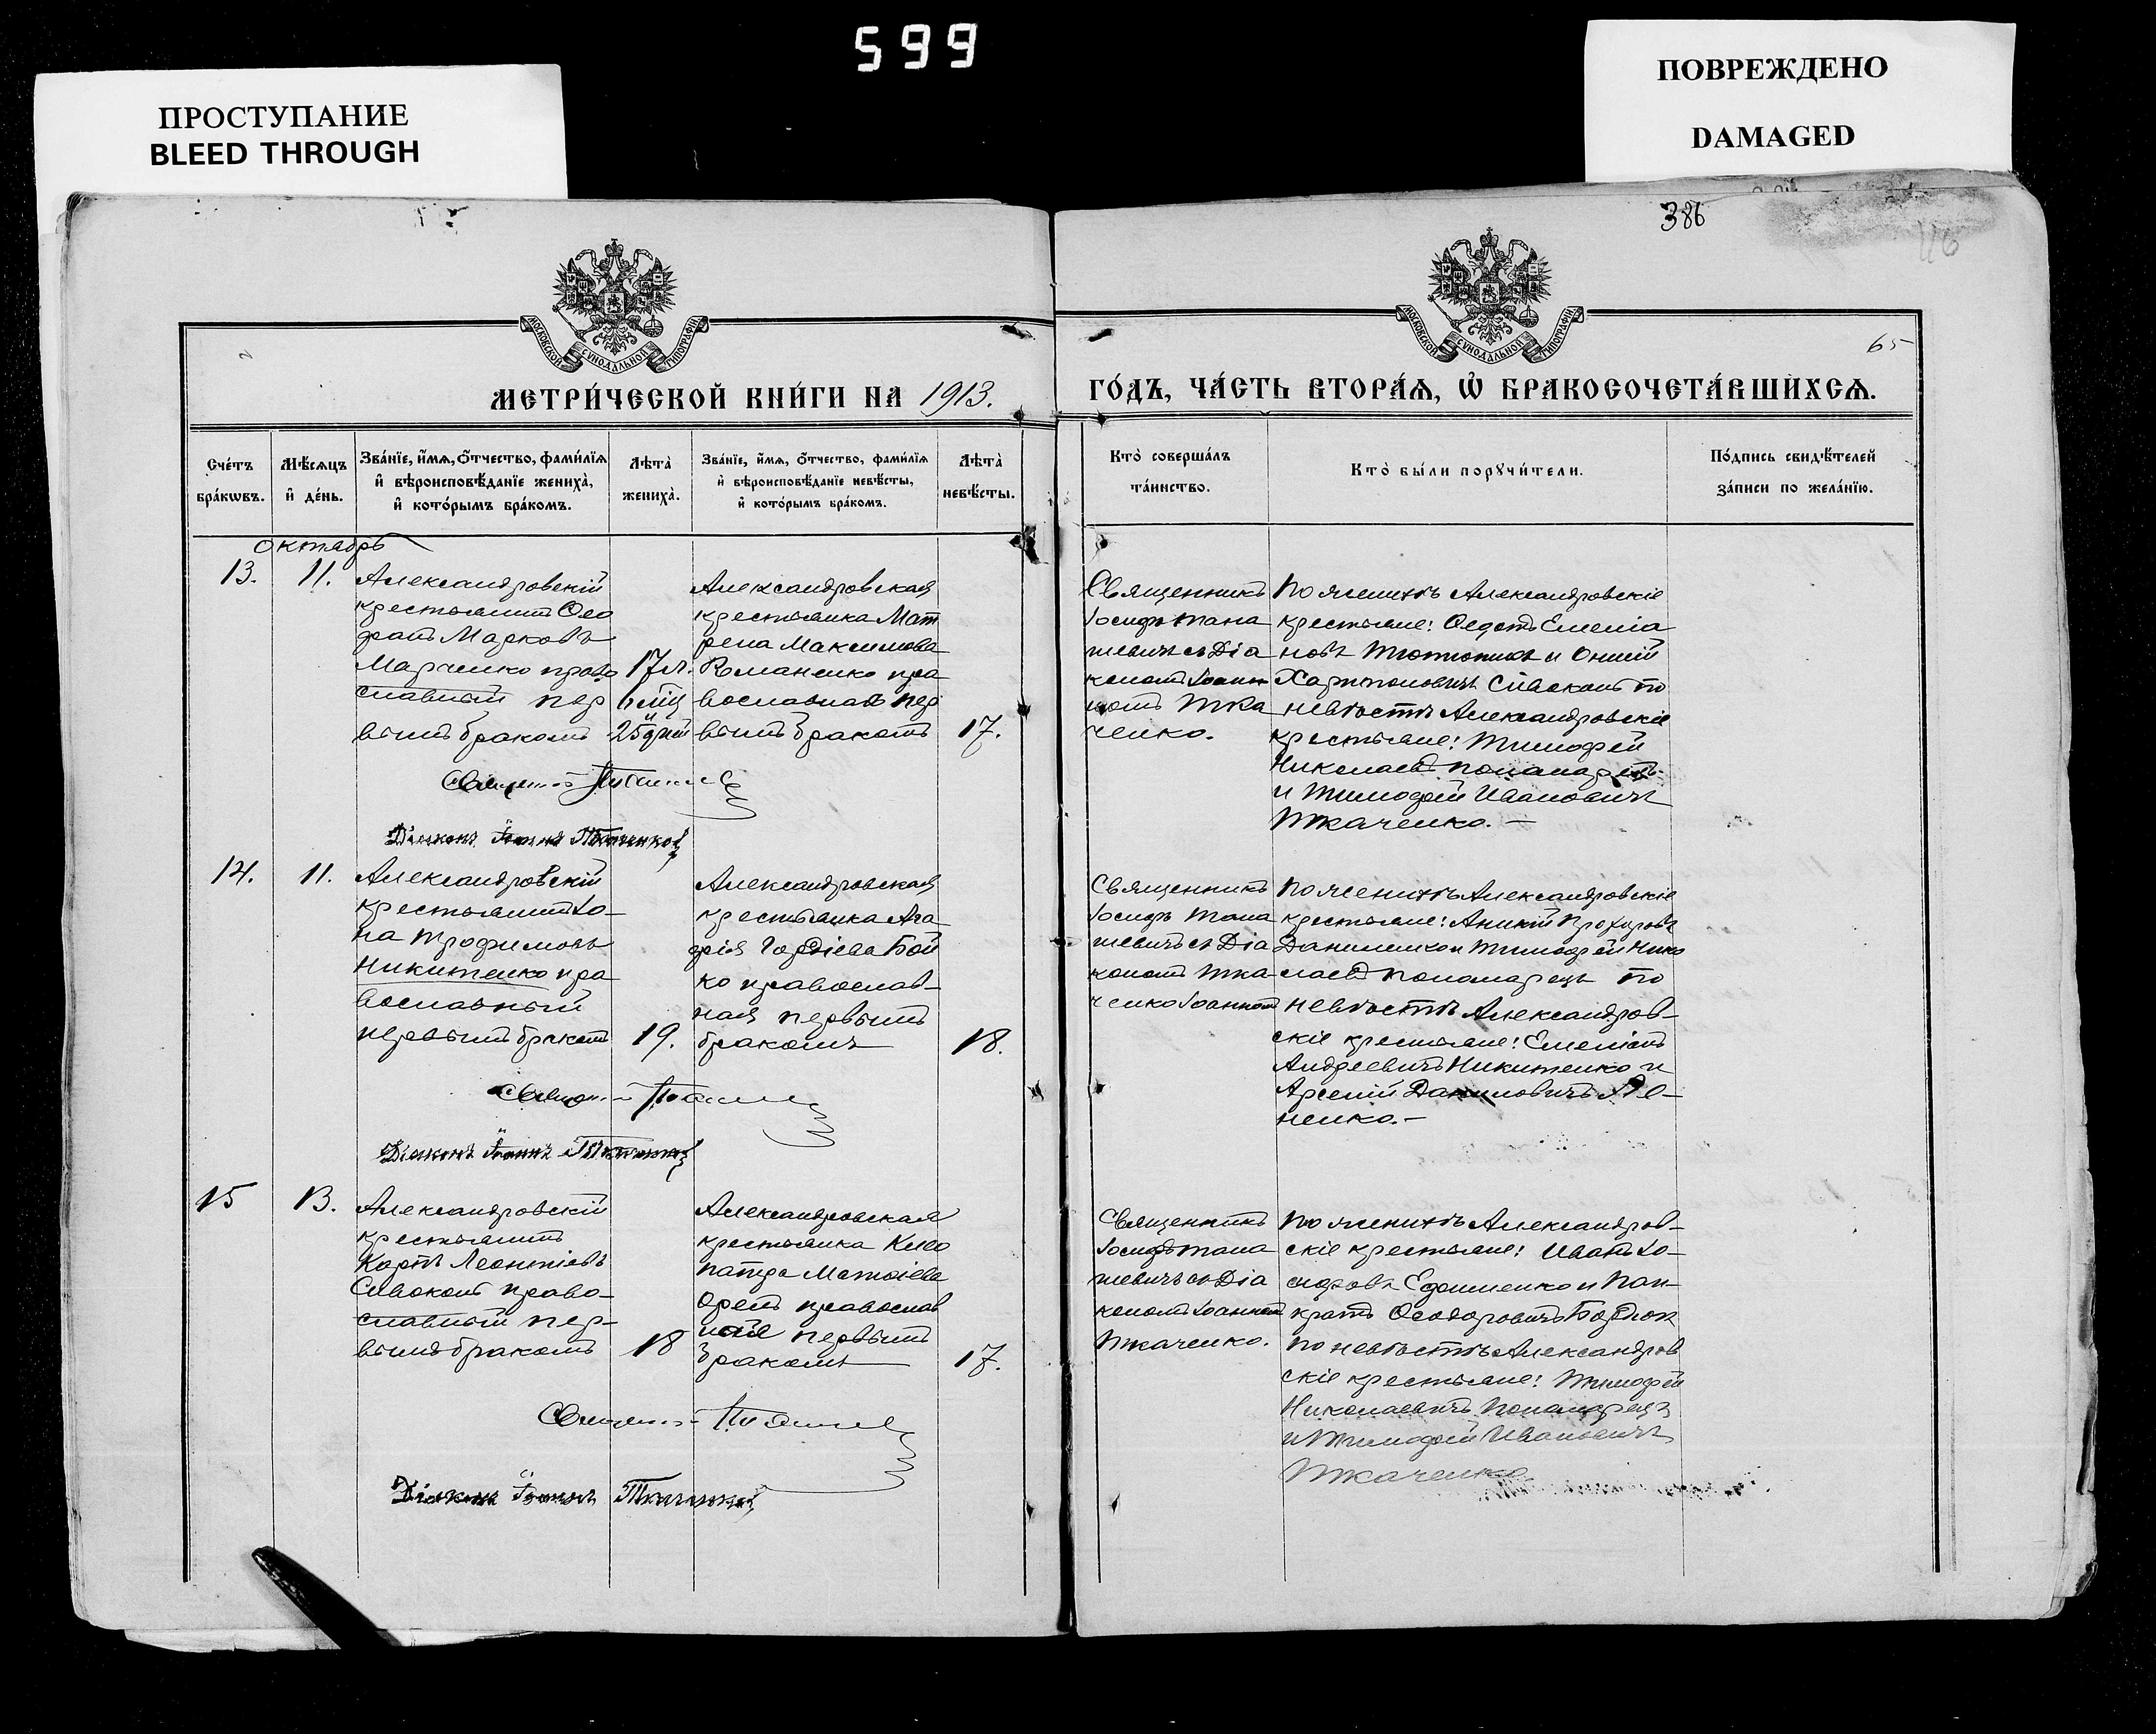 599
ПРОСТУПАНИЕ
BLEED THROUGH
ПОВРЕЖДЕНО
DAMAGED
386
116
65
МОСКОВСКОЙ СѴНОДАЛЬНОЙ ТИПОГРАФІИ
МОСКОВСКОЙ СѴНОДАЛЬНОЙ ТИПОГРАФІИ
МЕТРИ́ЧЕСКОЙ КНИ́ГИ НА 1913.
ГО́ДЪ, ЧА́СТЬ ВТОРА́Ѧ, Ѽ БРАКОСОЧЕТА́ВШИХСѦ.
Сче́тъ
бра́кѡвъ.
Мѣ́сѧцъ
и҆ де́нь.
Зва́нїе, и҆́мѧ, ѻ҆́тчество, фами́лїѧ
и҆ вѣроисповѣ́данїе жениха̀,
и҆ кото́рымъ бра́комъ.
Лѣ́та̀
жениха̀.
Зва́нїе, и҆́мѧ, ѻ҆́тчество, фами́лїѧ
и҆ вѣроисповѣ́данїе невѣ́сты,
и҆ кото́рымъ бра́комъ.
Лѣ́та̀
невѣ́сты.
Кто̀ соверша́лъ
та́инство.
Кто̀ бы́ли порꙋчи́тели.
По́дпись свидѣ́телей
за́писи по жела́нїю.
Октябрь
13.
11.
Александровскій
крестьянинъ Ѳео
фанъ Марковъ
Марченко право
славный пер
вымъ бракомъ
17 л.
6 мц
25 дней
Александровская
крестьянка Мат
рена Максимова
Романенко пра
вославная пер
вымъ бракомъ
17.
Священникъ
Іосифъ Тана
шевичъ съ Діа
кономъ Іоан
номъ Тка
ченко.
По женихѣ Александровскіе
крестьяне: Ѳедотъ Емелія
новъ Тютюникъ и Онисій
Харитоновичъ Сивоконь по
невѣстѣ Александровскіе
крестьяне: Тимофей
Николаевъ Пономарець
и Тимофей Ивановичъ
Ткаченко. —
Діаконъ Іоаннъ Ткаченко
14.
11.
Александровскій
крестьянинъ Іо-
на Трофимовъ
Никитенко пра
вославный
первымъ бракомъ
19.
Александровская
крестьянка Ага
фія Гордіева Бой
ко православ-
ная первымъ
бракомъ
18.
Священникъ
Іосифъ Тана
шевичъ съ Діа
кономъ Тка-
ченко Іоанномъ
По женихѣ Александровскіе
крестьяне: Аникій Прохоровъ
Даниленко и Тимофей Нико
лаевъ Пономарець по
невѣстѣ Александров-
скіе крестьяне: Емеліанъ
Андреевичъ Никитенко и
Арсеній Даниловичъ
ненко. —
Діаконъ Іоаннъ Ткаченко
15
13.
Александровскій
крестьянинъ
Карпъ Леонтіевъ
Сивоконь право-
славный пер-
вымъ бракомъ
18
Александровская
крестьянка Клео
патра Матѳіева
Орелъ православ
ная первымъ
бракомъ
17.
Священникъ
Іосифъ Тана
шевичъ съ Діа
кономъ Іоанномъ
Ткаченко.
По женихѣ Александров-
скіе крестьяне: Иванъ Іо-
сифовъ Ефименко и Пан-
кратъ Ѳеодоровичъ Бордюк
по невѣстѣ Александров
скіе крестьяне: Тимофей
Николаевичъ Пономарець
и Тимофей Ивановичъ
Ткаченко
Діаконъ Іоаннъ Ткаченко